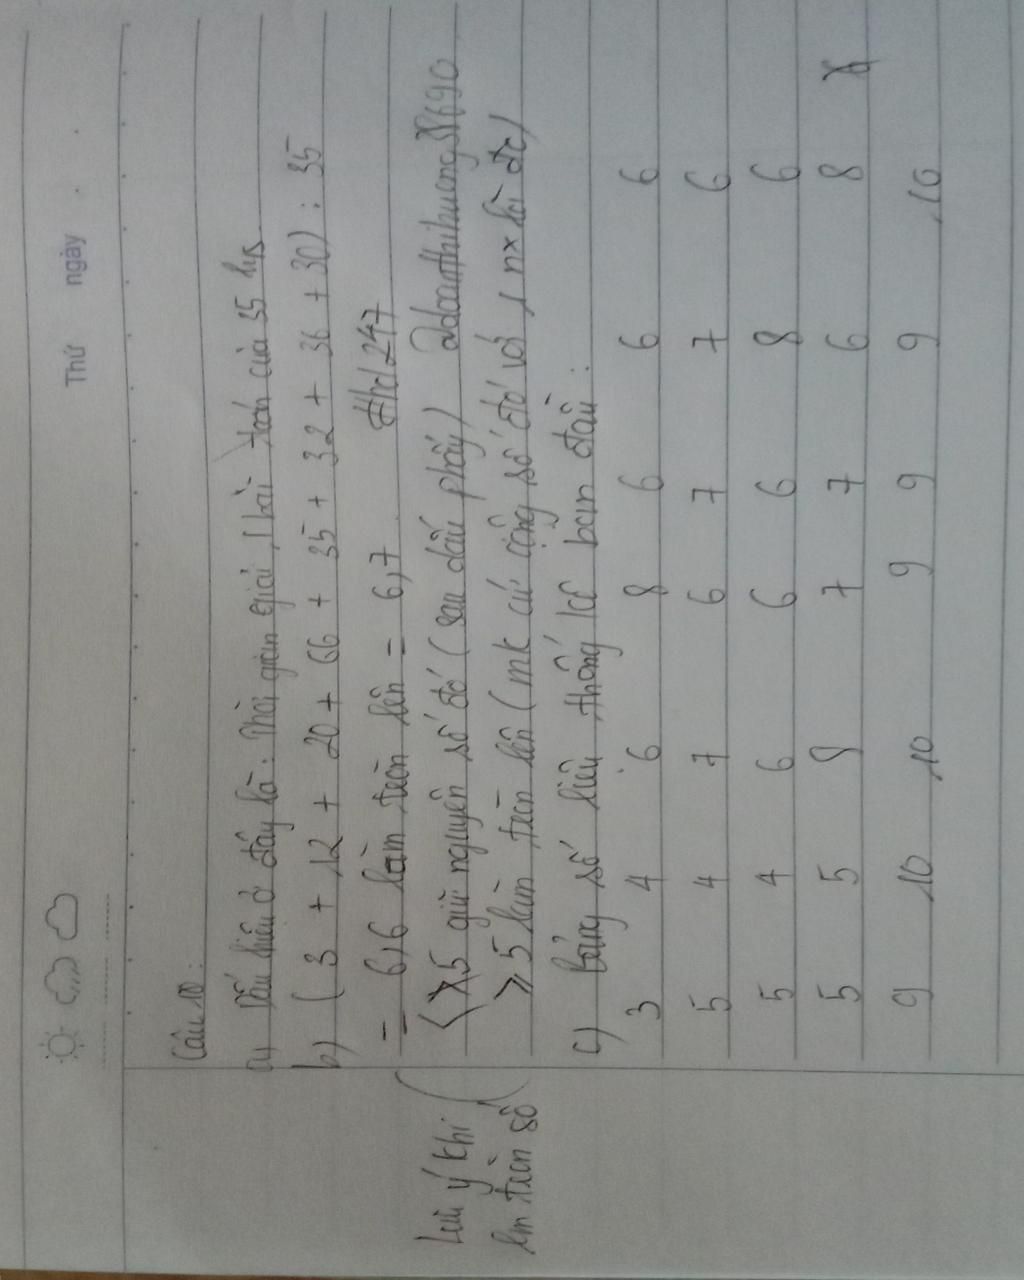 Thứ ngày
Câu 10:
a) Dấu hiệu ở đây là: Thời gian giải 1 bài toán của 35 hs
b) (3 + 12 + 20 + 66 + 35 + 32 + 36 + 30) : 35
= 6,6 làm tròn lên = 6,7 Hhd247
Lưu ý khi lm tròn số
< 5 giữ nguyên số đó (sau dấu phẩy) adoanthihuong
≥ 5 làm tròn lên (mk cứ cộng số đó với 1 nx là đc)
c) Bảng số liệu thống kê ban đầu:
3 4 6 8 6 6 6
5 4 7 6 7 7 6
5 4 6 6 6 8 6
5 5 8 7 7 6 8
9 10 10 9 9 9 10